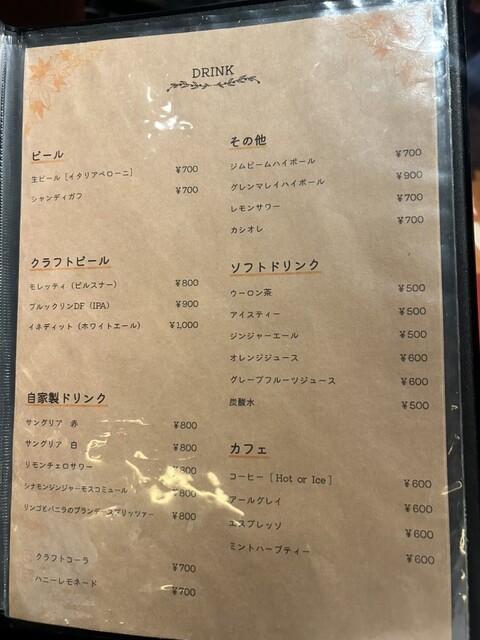 DRINK
ビール
生ビール［イタリアペローニ］ ¥700
シャンディガフ ¥700
クラフトビール
モレッティ（ピルスナー） ¥800
ブルックリンDF（IPA） ¥900
イネディット（ホワイトエール） ¥1,000
自家製ドリンク
サングリア 赤 ¥800
サングリア 白 ¥800
リモンチェロサワー ¥800
シナモンジンジャーモスコミュール ¥800
リンゴとバニラのブランデースプリッツァー ¥800
クラフトコーラ ¥700
ハニーレモネード ¥700
その他
ジムビームハイボール ¥700
グレンマレイハイボール ¥900
レモンサワー ¥700
カシオレ ¥700
ソフトドリンク
ウーロン茶 ¥500
アイスティー ¥500
ジンジャーエール ¥500
オレンジジュース ¥600
グレープフルーツジュース ¥600
炭酸水 ¥500
カフェ
コーヒー［Hot or Ice］ ¥600
アールグレイ ¥600
エスプレッソ ¥600
ミントハーブティー ¥600